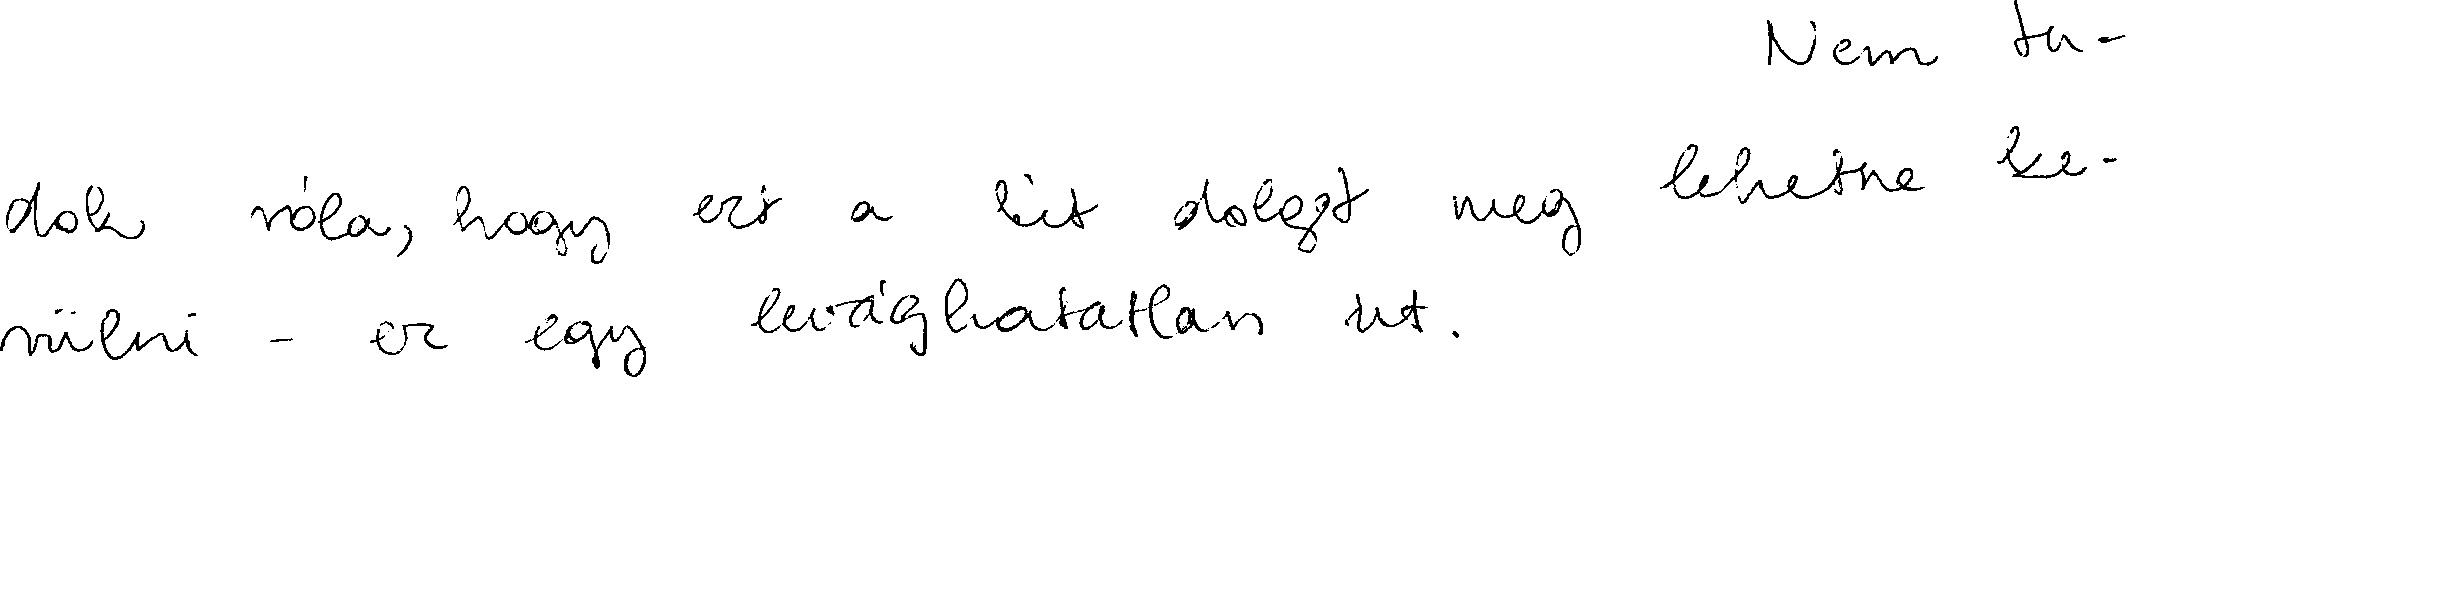 Nem tu-
dok róla, hogy ezt a két dolgot meg lehetne ke-
rülni - ez egy levághatatlan út.